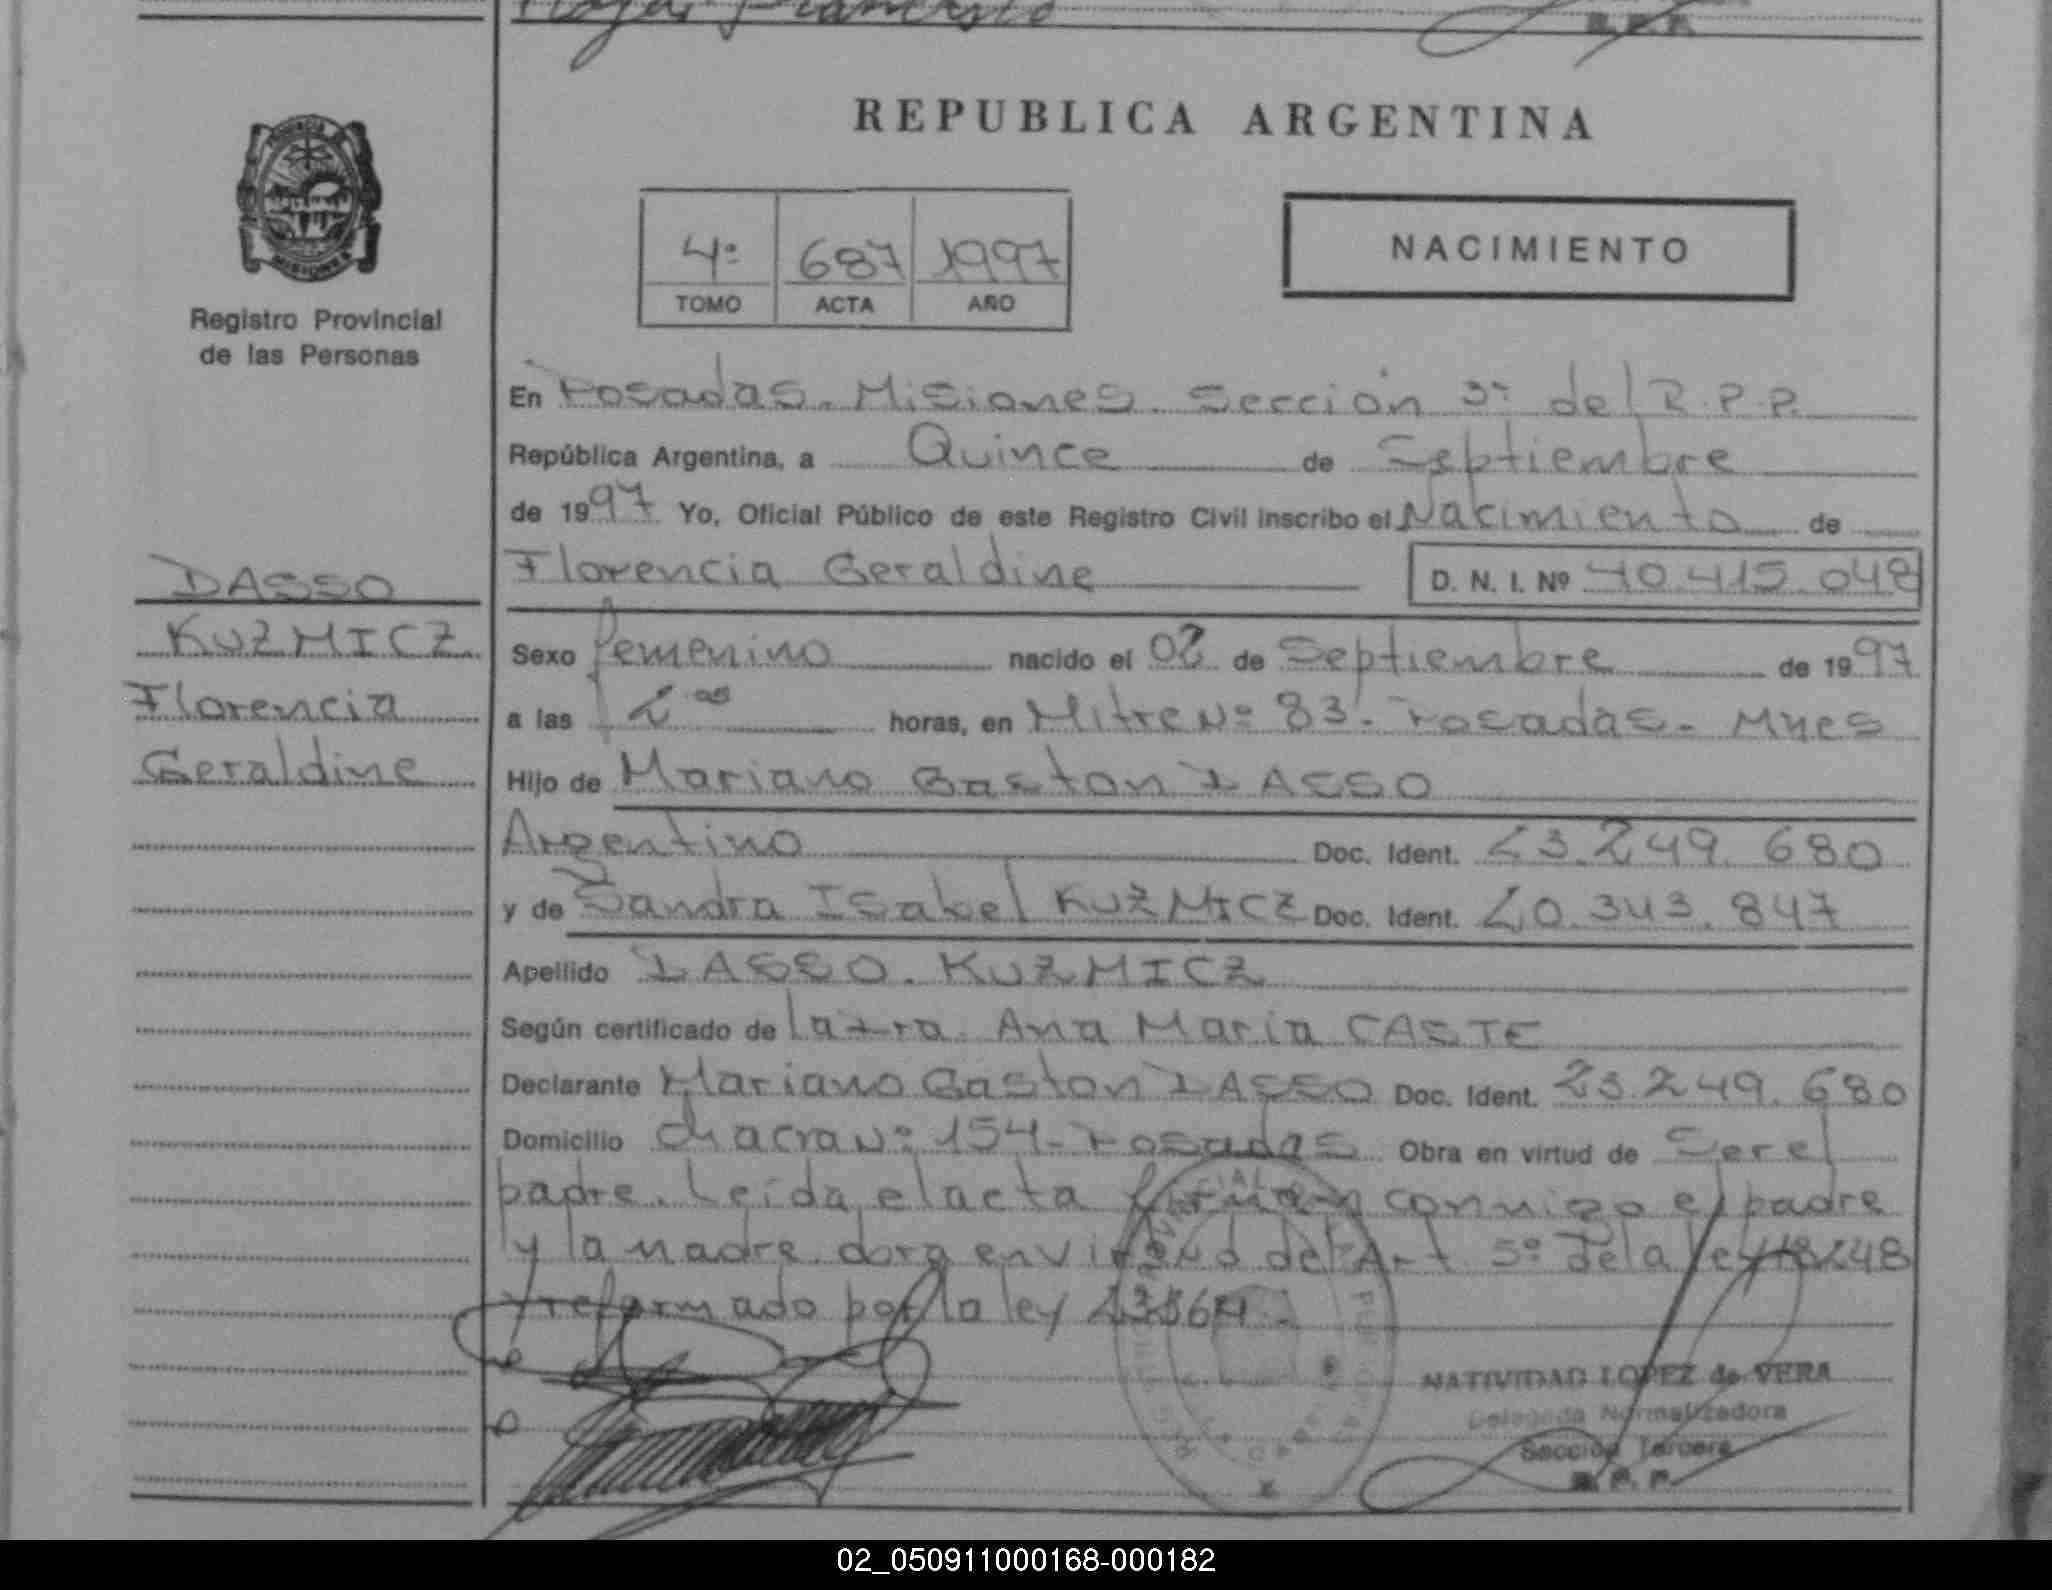 Francisco
R. P. P.
REPUBLICA ARGENTINA
PROVINCIA DE
MISIONES
Registro Provincial
de las Personas
4º 687 1997
TOMO ACTA AÑO
NACIMIENTO
En Posadas. Misiones. Sección 3ª del R.P.P.
República Argentina, a Quince de Septiembre
de 1997 Yo, Oficial Público de este Registro Civil inscribo el Nacimiento de
Florencia Geraldine D. N. I. Nº 40.415.048
DASSO
KUZMICZ
Florencia
Geraldine
Sexo femenino nacido el 02 de Septiembre de 1997
a las 2 horas, en Mitre Nº 83. Posadas. Mnes
Hijo de Mariano Gaston DASSO
Argentino Doc. Ident. 23.249.680
y de Sandra Isabel KUZMICZ Doc. Ident. 20.343.847
Apellido DASSO. KUZMICZ
Según certificado de la Dra. Ana María CASTE
Declarante Mariano Gaston DASSO Doc. Ident. 23.249.680
Domicilio Chacra Nº 154. Posadas Obra en virtud de Ser el
padre. Leída el acta firman conmigo el padre
y la madre. dora en virtud del Art. 5º de la ley 18248
y reformado por la ley 23264.
NATIVIDAD LOPEZ de VERA
Delegada Normalizadora
Sección Tercera
R. P. P.
02_050911000168-000182